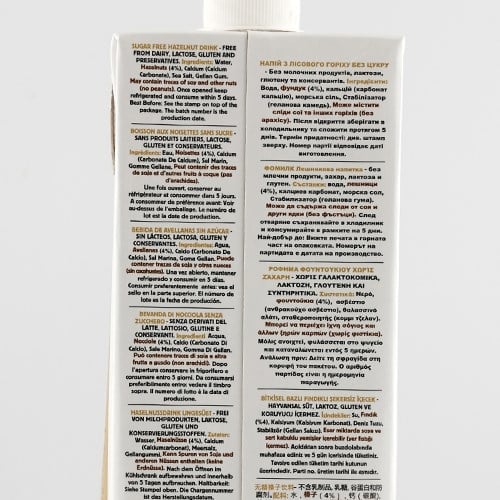 SUGAR FREE HAZELNUT DRINK - FREE
FROM DAIRY, LACTOSE, GLUTEN AND
PRESERVATIVES. Ingredients: Water,
Hazelnuts (4%), Calcium (Calcium
Carbonate), Sea Salt, Gellan Gum.
May contain traces of soy and other nuts
(no peanuts). Once opened keep
refrigerated and consume within 5 days.
Best Before: See the stamp on top of
the package. The batch number is the
production date.
BOISSON AUX NOISETTES SANS SUCRE -
SANS PRODUITS LAITIERS, LACTOSE,
GLUTEN ET CONSERVATEURS.
Ingrédients: Eau, Noisettes (4%), Calcium
(Carbonate De Calcium), Sel Marin,
Gomme Gellane. Peut contenir des traces
de soja et d'autres fruits à coque (pas
d'arachides).
Une fois ouvert, conserver au
réfrigérateur et consommer dans 5 jours.
A consommer de préférence avant: Voir
au-dessus de l'emballage. Le numéro de
lot est la date de production.
BEBIDA DE AVELLANAS SIN AZÚCAR -
SIN LÁCTEOS, LACTOSA, GLUTEN Y
CONSERVANTES. Ingredientes: Agua,
Avellanas (4%), Calcio (Carbonato De
Calcio), Sal Marina, Goma Gellan. Puede
contener trazas de soja y otras nueces
(sin cacahuetes). Una vez abierto, mantener
refrigerado y consumir en 5 días.
Consumir preferentemente antes: vea el
sello en la parte superior. El número de
lote es la fecha de producción.
BEVANDA DI NOCCIOLA SENZA
ZUCCHERO - SENZA DERIVATI DEL
LATTE, LATTOSIO, GLUTINE E
CONSERVANTI. Ingredienti: Acqua,
Nocciole (4%), Calcio (Carbonato Di
Calcio), Sale Marino, Gomma Di Gellan.
Può contenere tracce di soia e altra
frutta a guscio (non arachidi). Dopo
l'apertura conservare in frigorifero e
consumare entro 5 giorni. Da consumarsi
preferibilmente entro: vedere il timbro
sopra. Il numero di lotto è la data di
produzione.
HASELNUSSDRINK UNGESÜßT - FREI
VON MILCHPRODUKTEN, LAKTOSE,
GLUTEN UND
KONSERVIERUNGSSTOFFEN. Zutaten:
Wasser, Haselnüsse (4%), Calcium
(Calciumcarbonat), Meersalz,
Gellangummi. Kann Spuren von Soja und
anderen Nüssen enthalten (keine
Erdnüsse). Nach dem Öffnen im
Kühlschrank aufbewahren und innerhalb
von 5 Tagen aufbrauchen. Mindesthaltbarkeit:
Siehe Stempel oben. Die Chargennummer
ist das Herstellungsdatum.
НАПІЙ З ЛІСОВОГО ГОРІХУ БЕЗ ЦУКРУ
- Без молочних продуктів, лактози,
глютену та консервантів. Інгредієнти:
Вода, фундук (4%), кальцій (карбонат
кальцію), морська сіль, Стабілізатор
(геланова камедь). Може містити
сліди сої та інших горіхів (без
арахісу). Після відкриття зберігати в
холодильнику та спожити протягом 5
днів. Термін придатності див. штамп
зверху. Номер партії відповідає даті
виготовлення.
ФОМИЛК Лешникова напитка - без
млечни продукти, захар, лактоза и
глутен. Съставки: вода, лешници
(4%), калциев карбонат, морска сол,
Стабилизатор (геланова гума).
Може да съдържа следи от соя и
други ядки (без фъстъци). След
отваряне съхранявайте в хладилник
и консумирайте в рамките на 5 дни.
Най-добър до: Вижте печата в горната
част на опаковката. Номерът на
партидата е датата на производство.
ΡΟΦΗΜΑ ΦΟΥΝΤΟΥΚΙΟΥ ΧΩΡΙΣ
ΖΑΧΑΡΗ - ΧΩΡΙΣ ΓΑΛΑΚΤΟΚΟΜΙΚΑ,
ΛΑΚΤΟΖΗ, ΓΛΟΥΤΕΝΗ ΚΑΙ
ΣΥΝΤΗΡΗΤΙΚΑ. Συστατικά: Νερό,
φουντούκια (4%), ασβέστιο
(ανθρακικό ασβέστιο), θαλασσινό
αλάτι, σταθεροποιητής (κόμμι τζελαν).
Μπορεί να περιέχει ίχνη σόγιας και
άλλων ξηρών καρπών (χωρίς φιστίκια).
Μόλις ανοιχτεί, φυλάσσεται στο ψυγείο
και καταναλώνεται εντός 5 ημερών.
Ανάλωση πριν: Δείτε τη σφραγίδα στη
κορυφή του πακέτου. Ο αριθμός
παρτίδας είναι η ημερομηνία
παραγωγής.
BİTKİSEL BAZLI FINDIKLI ŞEKERSİZ İÇECEK -
HAYVANSAL SÜT, LAKTOZ, GLUTEN VE
KORUYUCU İÇERMEZ. İçindekiler: Su, Fındık
(%4), Kalsiyum (Kalsiyum Karbonat), Deniz Tuzu,
Stabilizör (Gellan Gum). Eser miktarda soya ve
sert kabuklu yemişler içerebilir (yer fıstığı içermez).
Açıldıktan sonra buzdolabında
muhafaza ediniz ve 5 gün içinde tüketiniz.
Tavsiye edilen tüketim tarihi kutunun
üzerindedir. Parti no. üretim tarihi ile aynıdır.
无糖榛子饮料 - 不含乳制品, 乳糖, 谷蛋白和防
腐剂。配料: 水, 榛子 (4%), 钙 (碳酸钙),